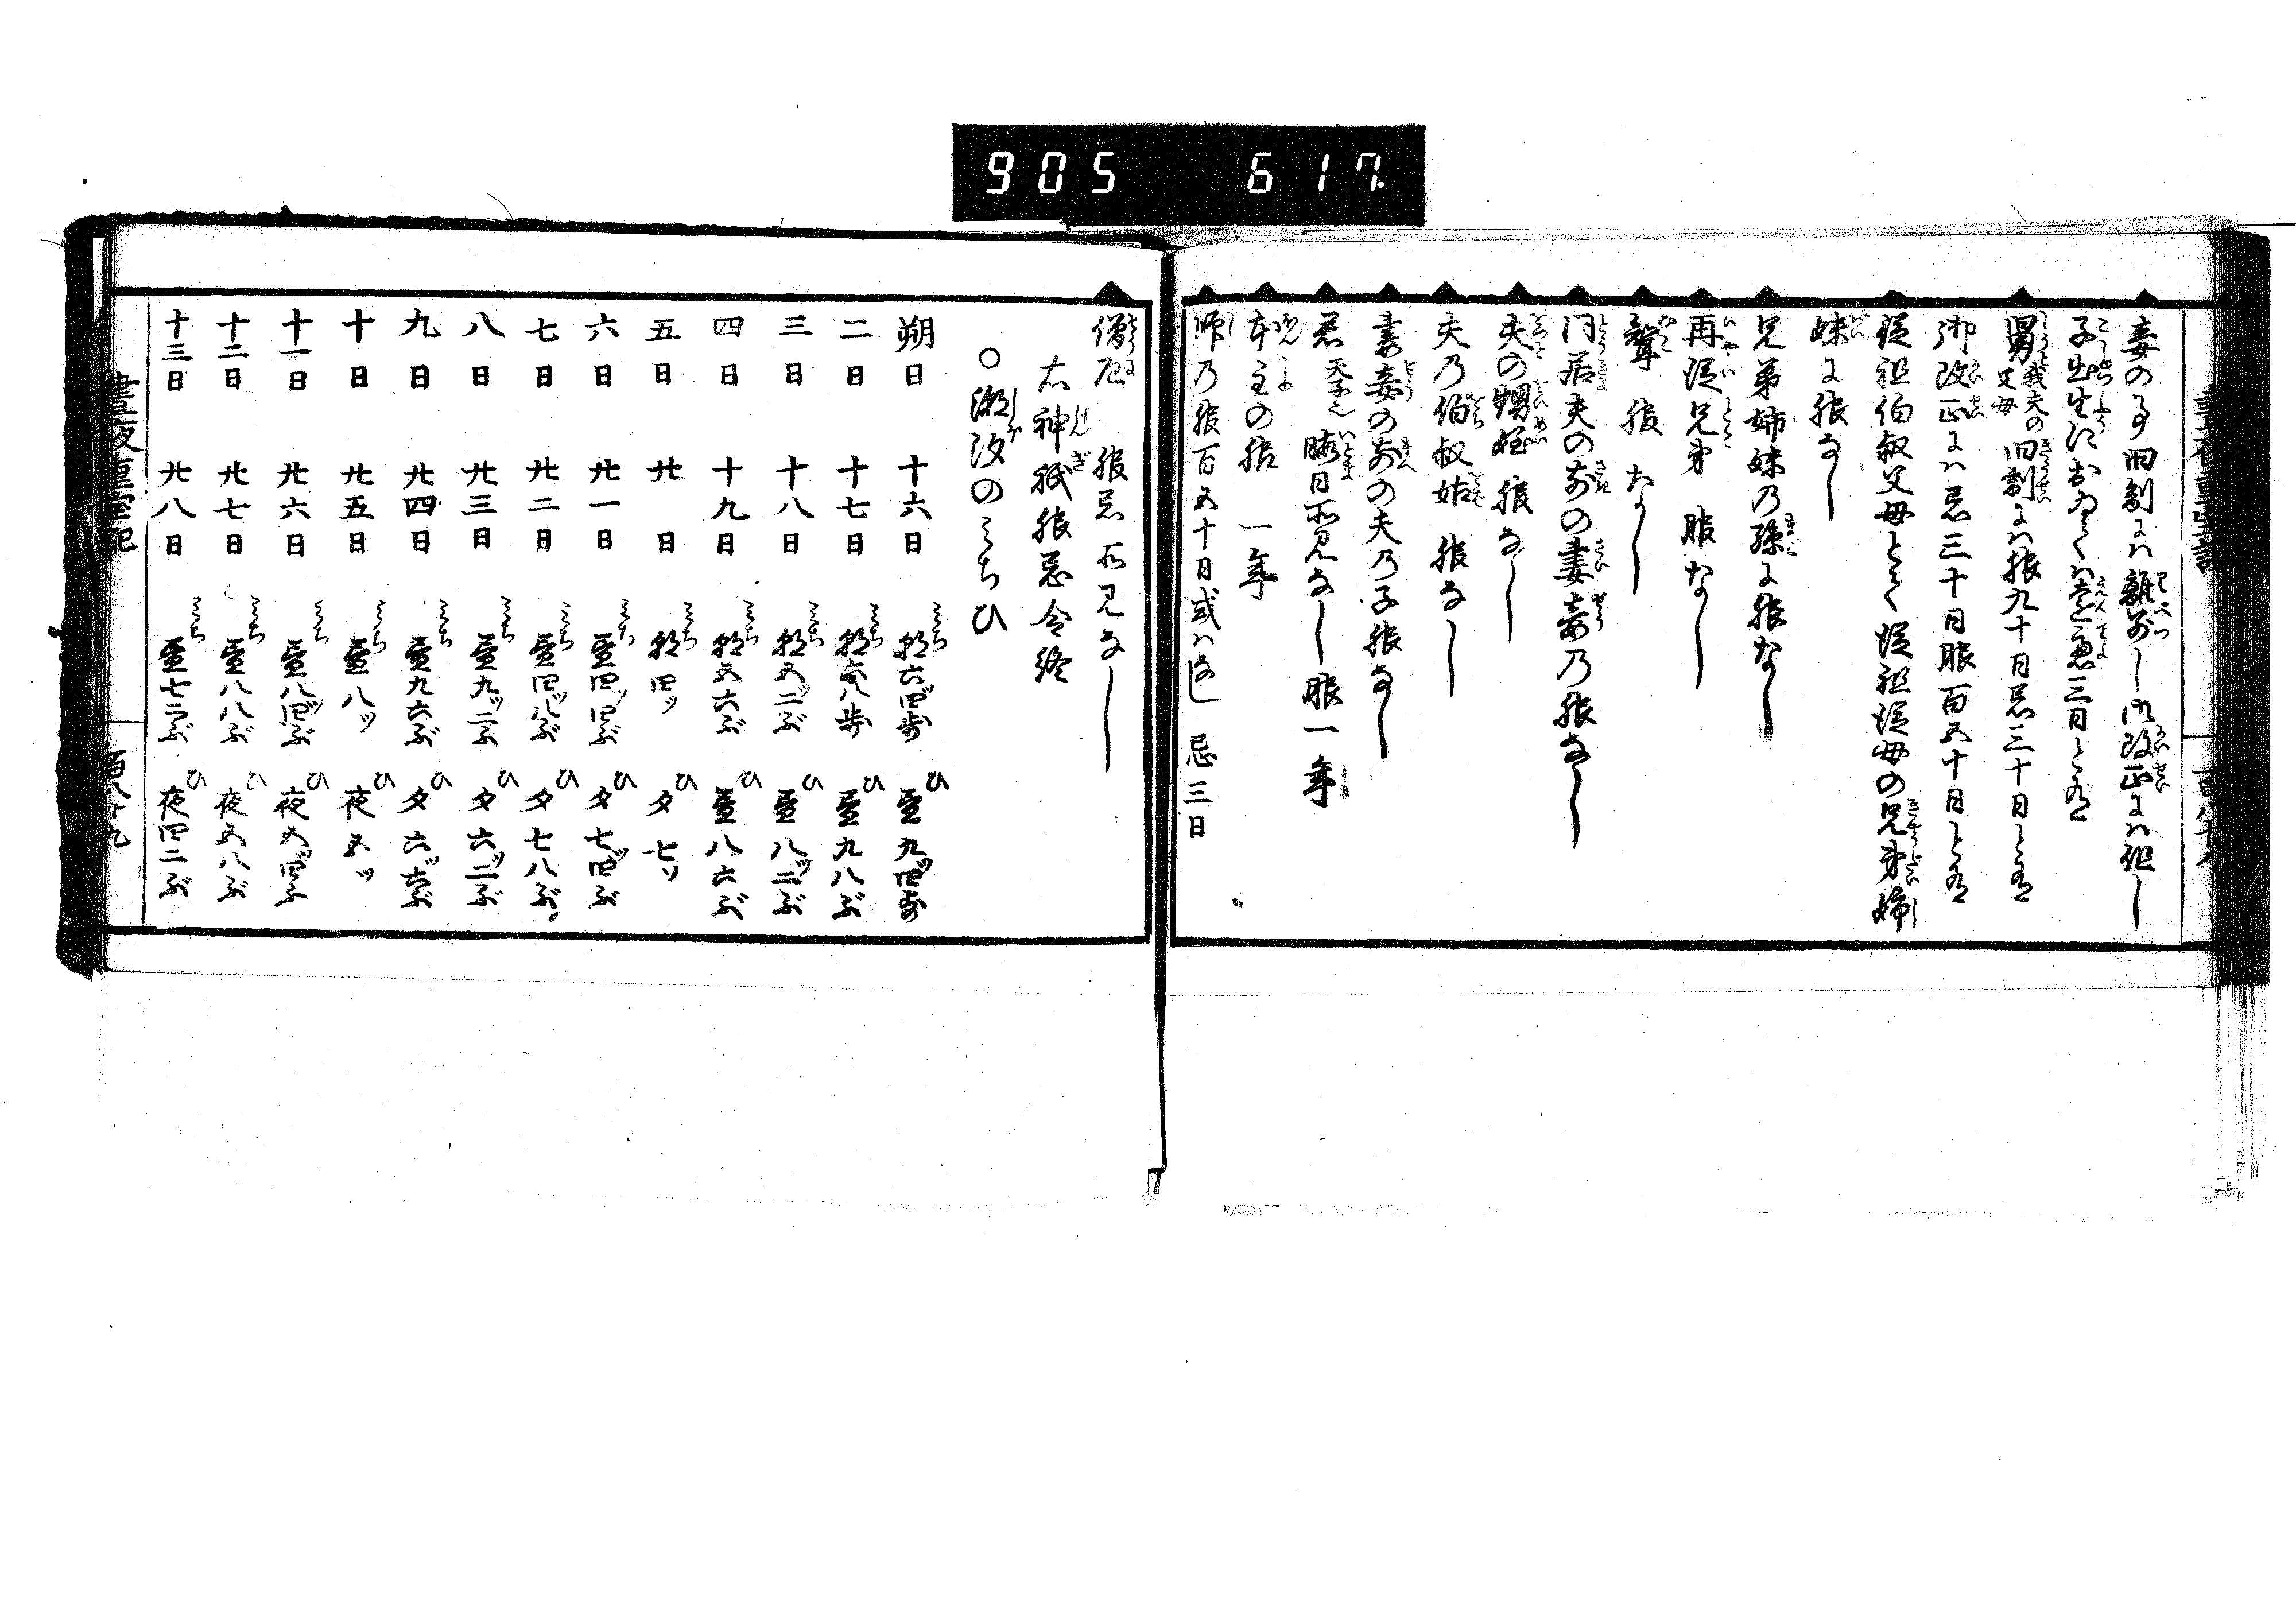 905 617
妾の事旧制には離別し御改正には但し
子出生におゐては是は憑三日と有
舅 我夫の父母 旧制には服九十日忌三十日と有
御改正には忌三十日服百五十日と有
従祖伯叔父母とく従祖従母の兄弟姉
妹に服なし
兄弟姉妹乃孫に服なし
再従兄弟 服なし
聟 服なし
同居夫の前の妻妾乃服なし
夫の甥姪 服なし
夫乃伯叔姑 服なし
妻妾の前の夫乃子服なし
君 天子也 暇日所見なし 服一年
本主の服 一年
師乃服百五十日或はなし 忌三日
百八十八
僧尼 服忌所見なし
右神祇服忌令終
○潮汐のみちひ
朔日 十六日 みち 朝六四歩 ひ 昼九ツ四歩
二日 十七日 みち 朝六八歩 ひ 昼九八ぶ
三日 十八日 みち 朝五ツ二ぶ ひ 昼八ツ二ぶ
四日 十九日 みち 朝五六ぶ ひ 昼八六ぶ
五日 廿日 みち 朝四ツ ひ 夕七ツ
六日 廿一日 みち 昼四ツ四ぶ ひ 夕七ツ四ぶ
七日 廿二日 みち 昼四ツ八ぶ ひ 夕七八ぶ
八日 廿三日 みち 昼九ツ二ぶ ひ 夕六ツ二ぶ
九日 廿四日 みち 昼九六ぶ ひ 夕六ツ六ぶ
十日 廿五日 みち 昼八ツ ひ 夜五ツ
十一日 廿六日 みち 昼八ツ四ぶ ひ 夜五ツ四ぶ
十二日 廿七日 みち 昼八八ぶ ひ 夜五八ぶ
十三日 廿八日 みち 昼七二ぶ ひ 夜四二ぶ
昼夜重宝記 百八十九